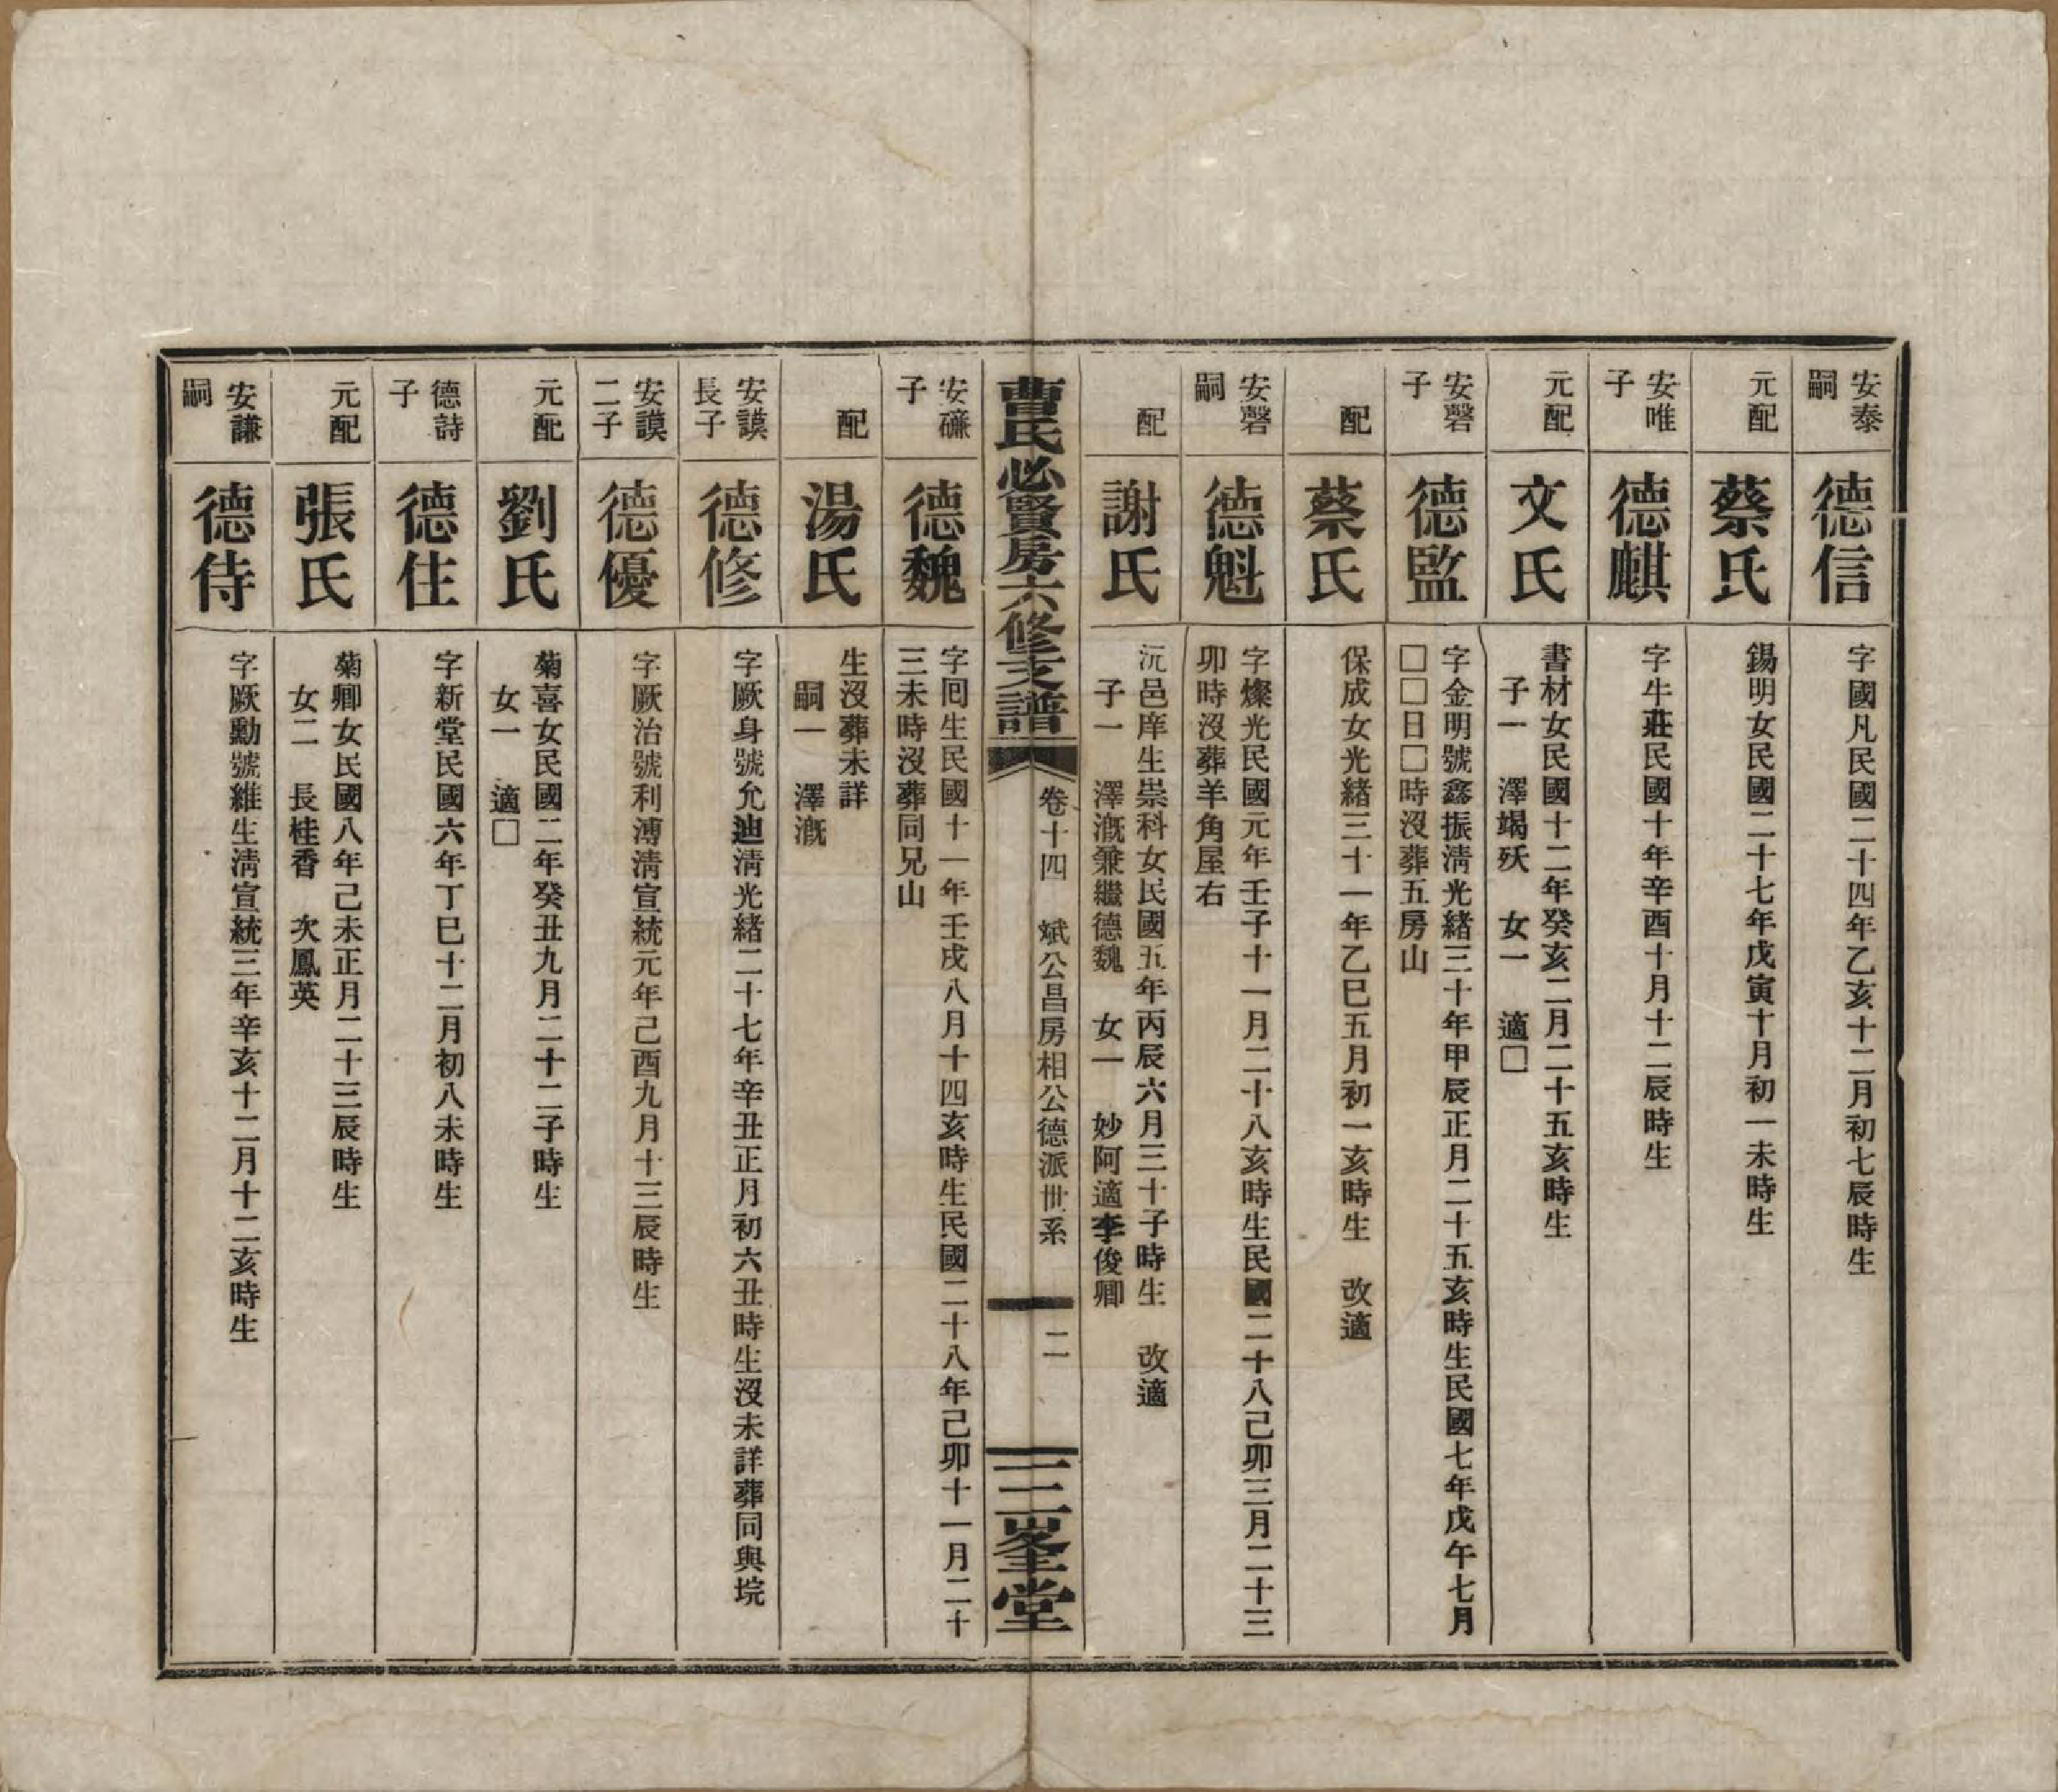 安泰
嗣
德信
字國凡民國二十四年乙亥十二月初七辰時生
元配
蔡氏
錫明女民國二十七年戊寅十月初一未時生
安唯
子
德麒
字牛莊民國十年辛酉十月十二辰時生
元配
文氏
書材女民國十二年癸亥二月二十五亥時生
子一　澤竭殀　女一　適□
安磬
子
德監
字金明號鑫振淸光緒三十年甲辰正月二十五亥時生民國七年戊午七月
□□日□時沒葬五房山
配
蔡氏
保成女光緒三十一年乙巳五月初一亥時生　改適
安磬
嗣
德魁
字燦光民國元年壬子十一月二十八亥時生民國二十八己卯三月二十三
卯時沒葬羊角屋右
配
謝氏
沅邑庠生崇科女民國五年丙辰六月三十子時生　改適
子一　澤漑兼繼德魏　女一　妙阿適李俊卿
曹氏必賢房六修支譜
卷十四　斌公昌房相公德派世系
二
三峯堂
安磏
子
德魏
字囘生民國十一年壬戌八月十四亥時生民國二十八年己卯十一月二十
三未時沒葬同兄山
配
湯氏
生沒葬未詳
嗣一　澤漑
安謨
長子
德修
字厥身號允迪淸光緒二十七年辛丑正月初六丑時生沒未詳葬同與垸
安謨
二子
德優
字厥治號利溥淸宣統元年己酉九月十三辰時生
元配
劉氏
菊喜女民國二年癸丑九月二十二子時生
女一　適□
德詩
子
德住
字新堂民國六年丁巳十二月初八未時生
元配
張氏
菊卿女民國八年己未正月二十三辰時生
女二　長桂香　次鳳英
安謙
嗣
德侍
字厥勳號維生淸宣統三年辛亥十二月十二亥時生